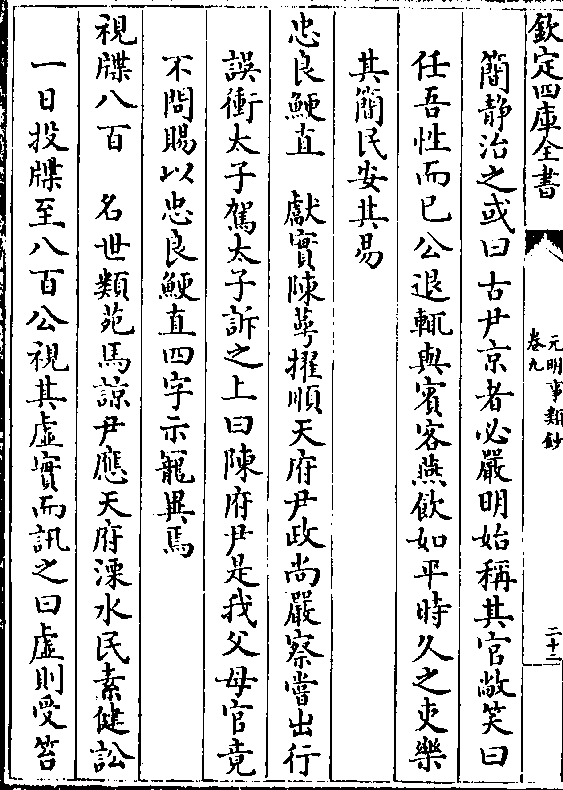 欽定四庫全書
元明事類鈔
卷九
二十二
簡静治之或曰古尹京者必嚴明始稱其官敞笑曰
任吾性而已公退輒與賓客燕飲如平時久之吏樂
其簡民安其易
忠良鯁直　獻實陳蕚擢順天府尹政尚嚴察嘗出行
誤衝太子駕太子訴之上曰陳府尹是我父母官竟
不問賜以忠良鯁直四字示寵異焉
視牒八百　名世類苑馬諒尹應天府溧水民素健訟
一日投牒至八百公視其虚實而訊之曰虚則受笞